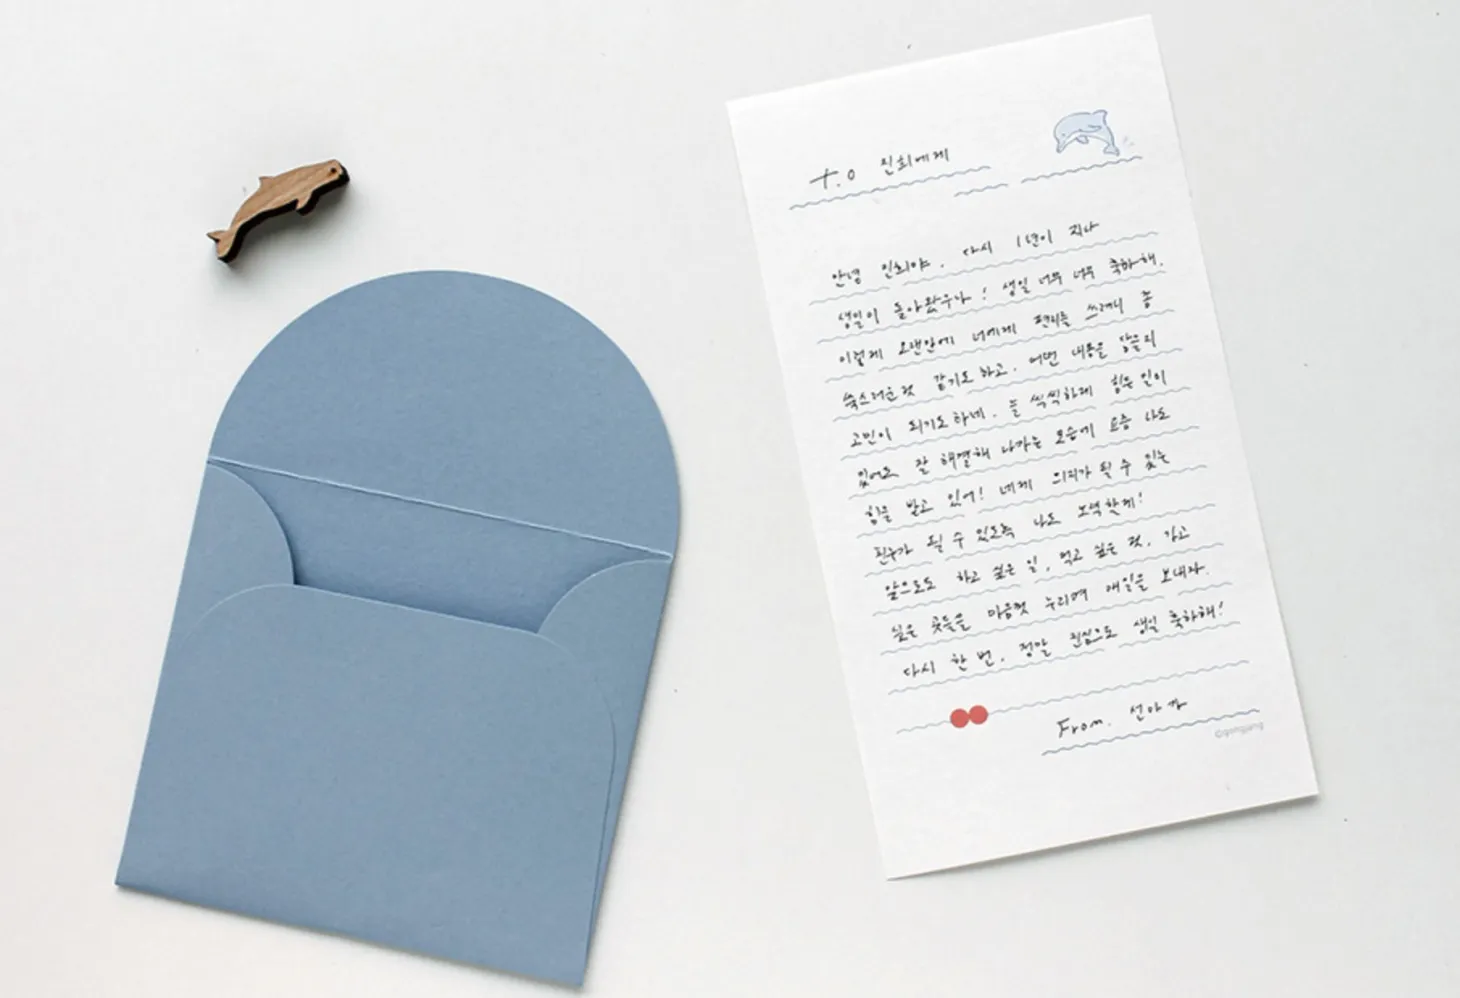 t.o 진희에게
안녕 진희야. 다시 1년이 지나
생일이 돌아왔구나! 생일 너무 너무 축하해.
이렇게 오랜만에 너에게 편지를 쓰려니 좀
쑥스러운것 같기도 하고. 어떤 내용을 담을지
고민이 되기도하네. 늘 씩씩하게 힘든 일이
있어도 잘 해결해 나가는 모습에 요즘 나도
힘을 받고 있어! 네게 의지가 될 수 있는
친구가 될 수 있도록 나도 노력할게!
앞으로도 하고 싶은 일, 먹고 싶은 것, 가고
싶은 곳들을 마음껏 누리며 매일을 보내자.
다시 한 번, 정말 진심으로 생일 축하해!
From. 선아가